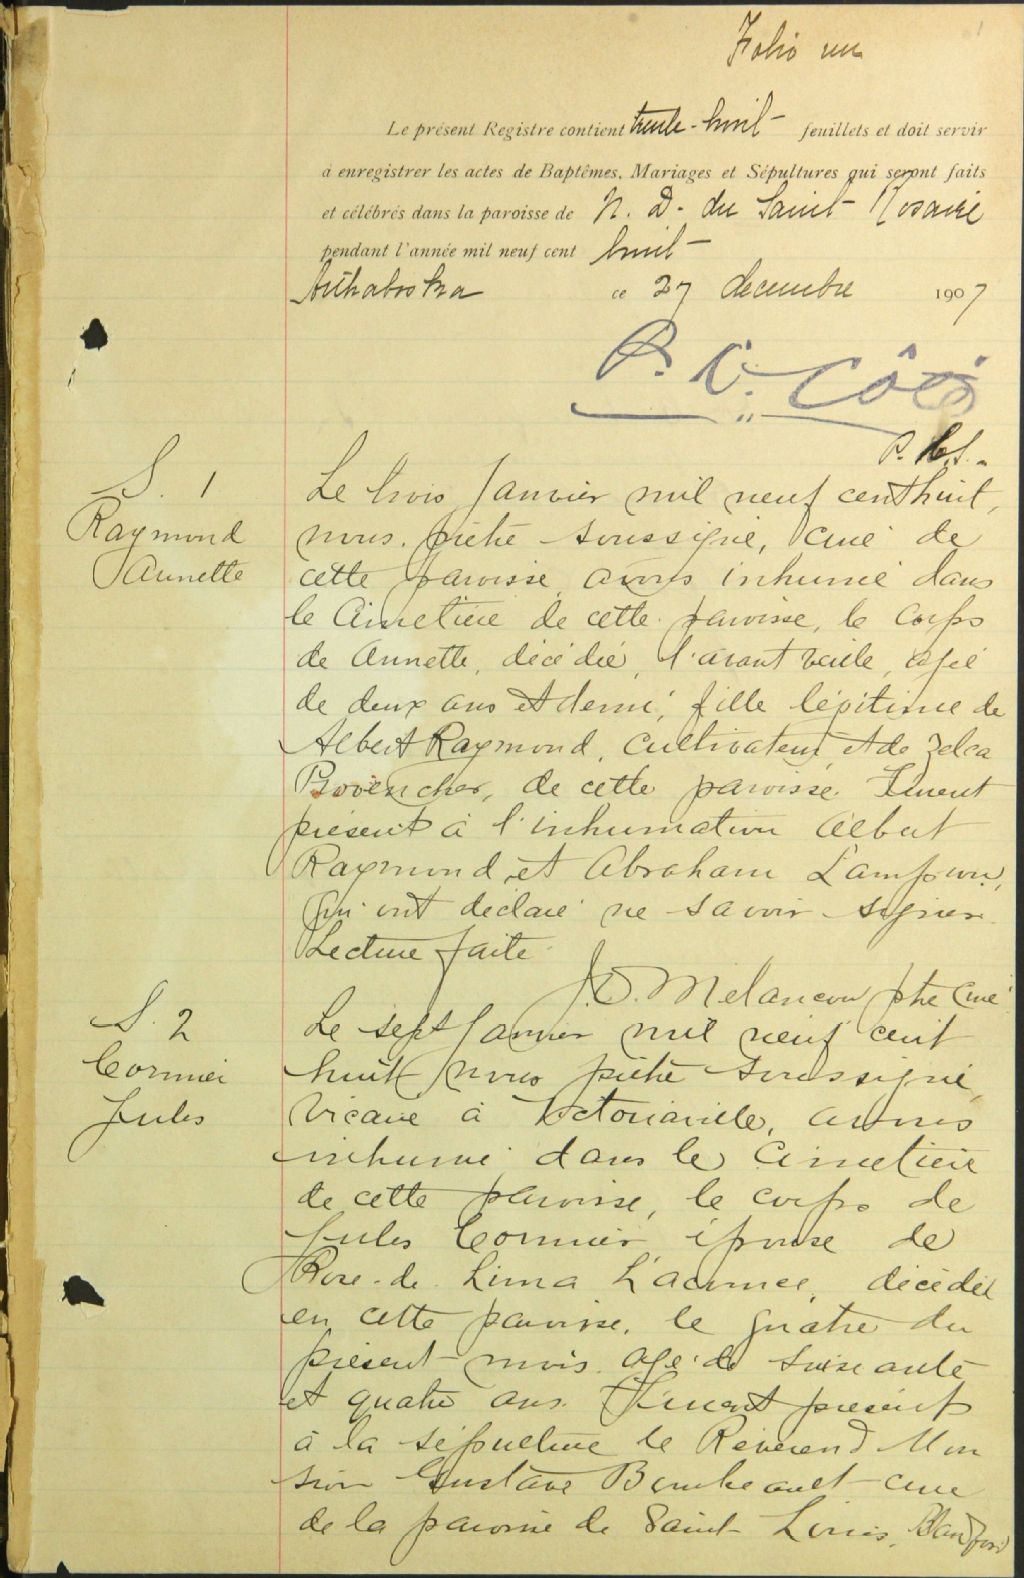 Folio un
Le présent Registre contient trente-huit feuillets et doit servir
à enregistrer les actes de Baptêmes, Mariages et Sépultures qui seront faits
et célébrés dans la paroisse de N. D. du Saint Rosaire
pendant l'année mil neuf cent huit
Arthabaska ce 27 decembre 1907
P. C. S.
S. 1
Raymond
Annette
Le trois Janvier mil neuf cent huit,
nous, prêtre soussigné, curé de
cette paroisse avons inhumé dans
le Cimetière de cette paroisse, le corps
de Annette, décédée, l'avant veille, agée
de deux ans et demi, fille légitime de
Albert Raymond, cultivateur, et de
Provencher, de cette paroisse. Furent
présents à l'inhumation Albert
Raymond et Abraham
qui ont déclaré ne savoir signer.
Lecture faite
Melancon ptre curé
S. 2
Cormier
Jules
Le sept Janvier mil neuf cent
huit nous prêtre soussigné,
vicaire à Victoriaville, avons
inhumé dans le Cimetière
de cette paroisse, le corps de
Jules Cormier époux de
Rose-de-Lima décédé
en cette paroisse, le quatre du
présent mois agé de soixante
et quatre ans. Furent présents
à la sépulture le Révérend Mon
sieur Gustave curé
de la paroisse de Saint Louis, Blandford